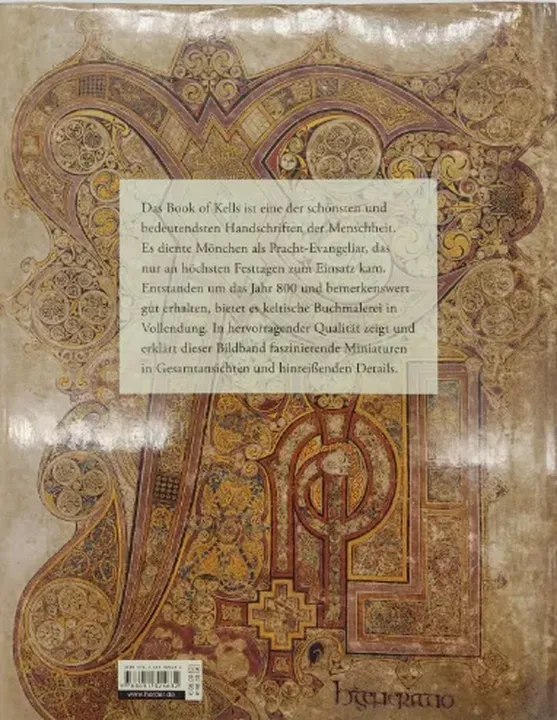 Das Book of Kells ist eine der schönsten und
bedeutendsten Handschriften der Menschheit.
Es diente Mönchen als Pracht-Evangeliar, das
nur an höchsten Festtagen zum Einsatz kam.
Entstanden um das Jahr 800 und bemerkenswert
gut erhalten, bietet es keltische Buchmalerei in
Vollendung. In hervorragender Qualität zeigt und
erklärt dieser Bildband faszinierende Miniaturen
in Gesamtansichten und hinreißenden Details.
www.herder.de
h generatio